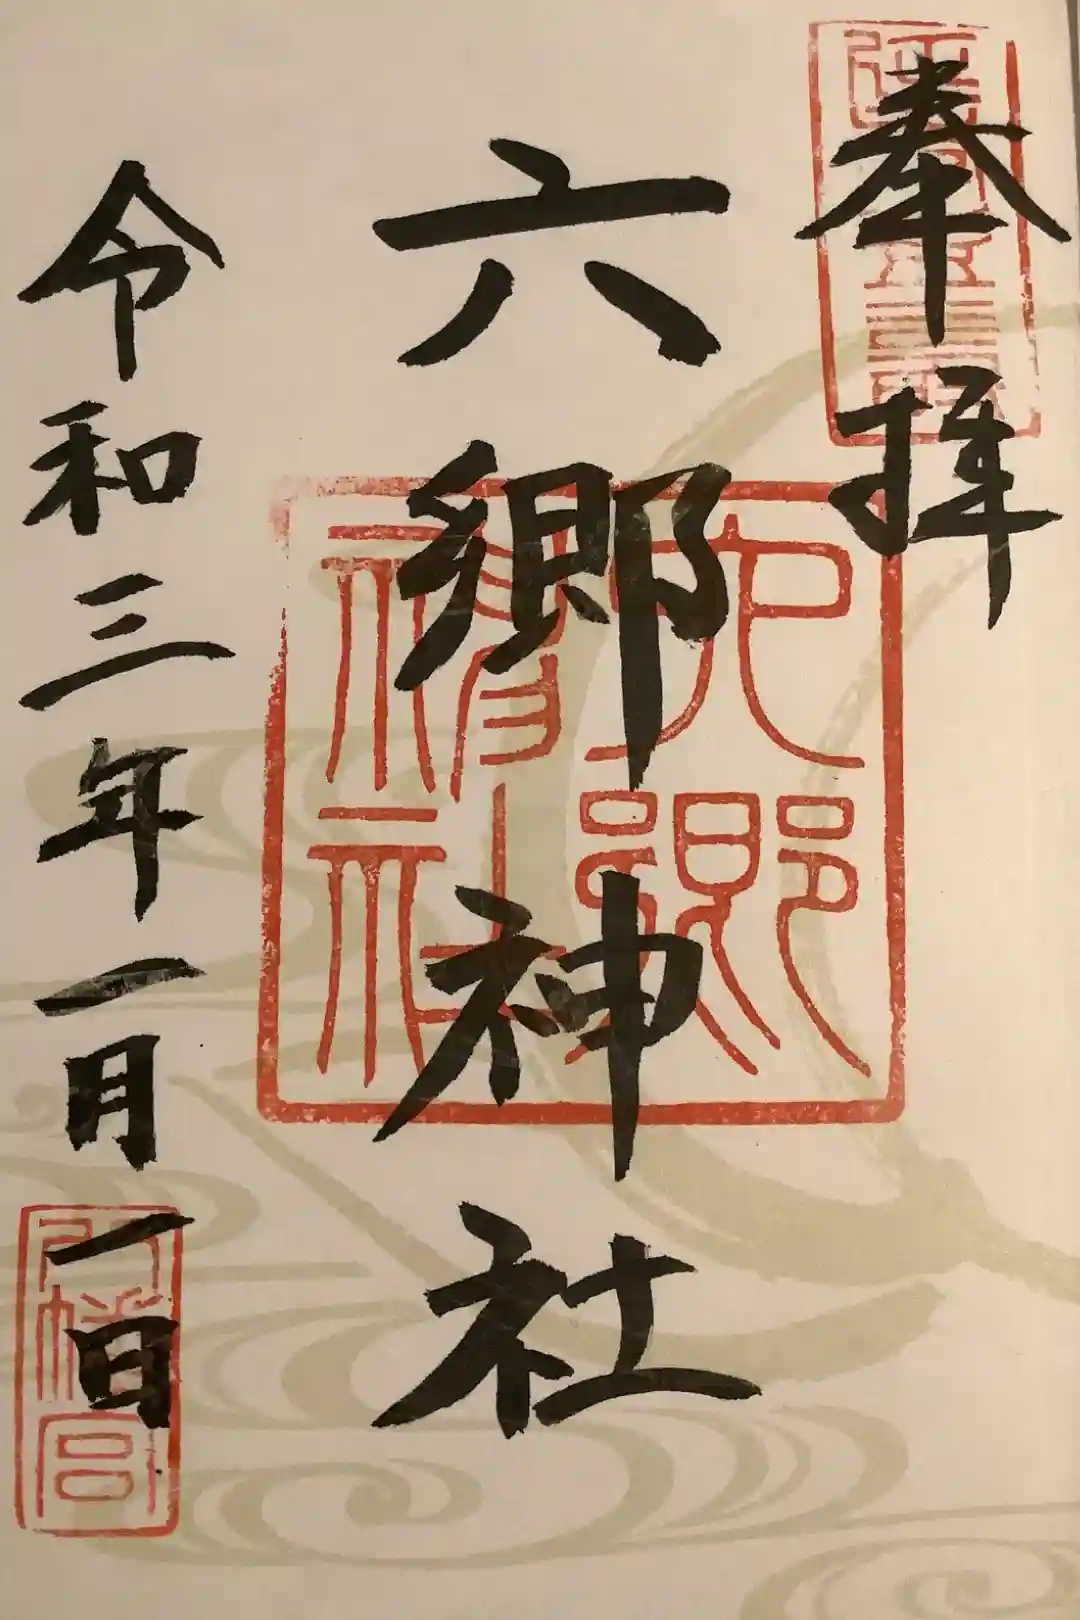 奉拝
六郷神社
六郷
神社
令和三年一月一日
八幡宮